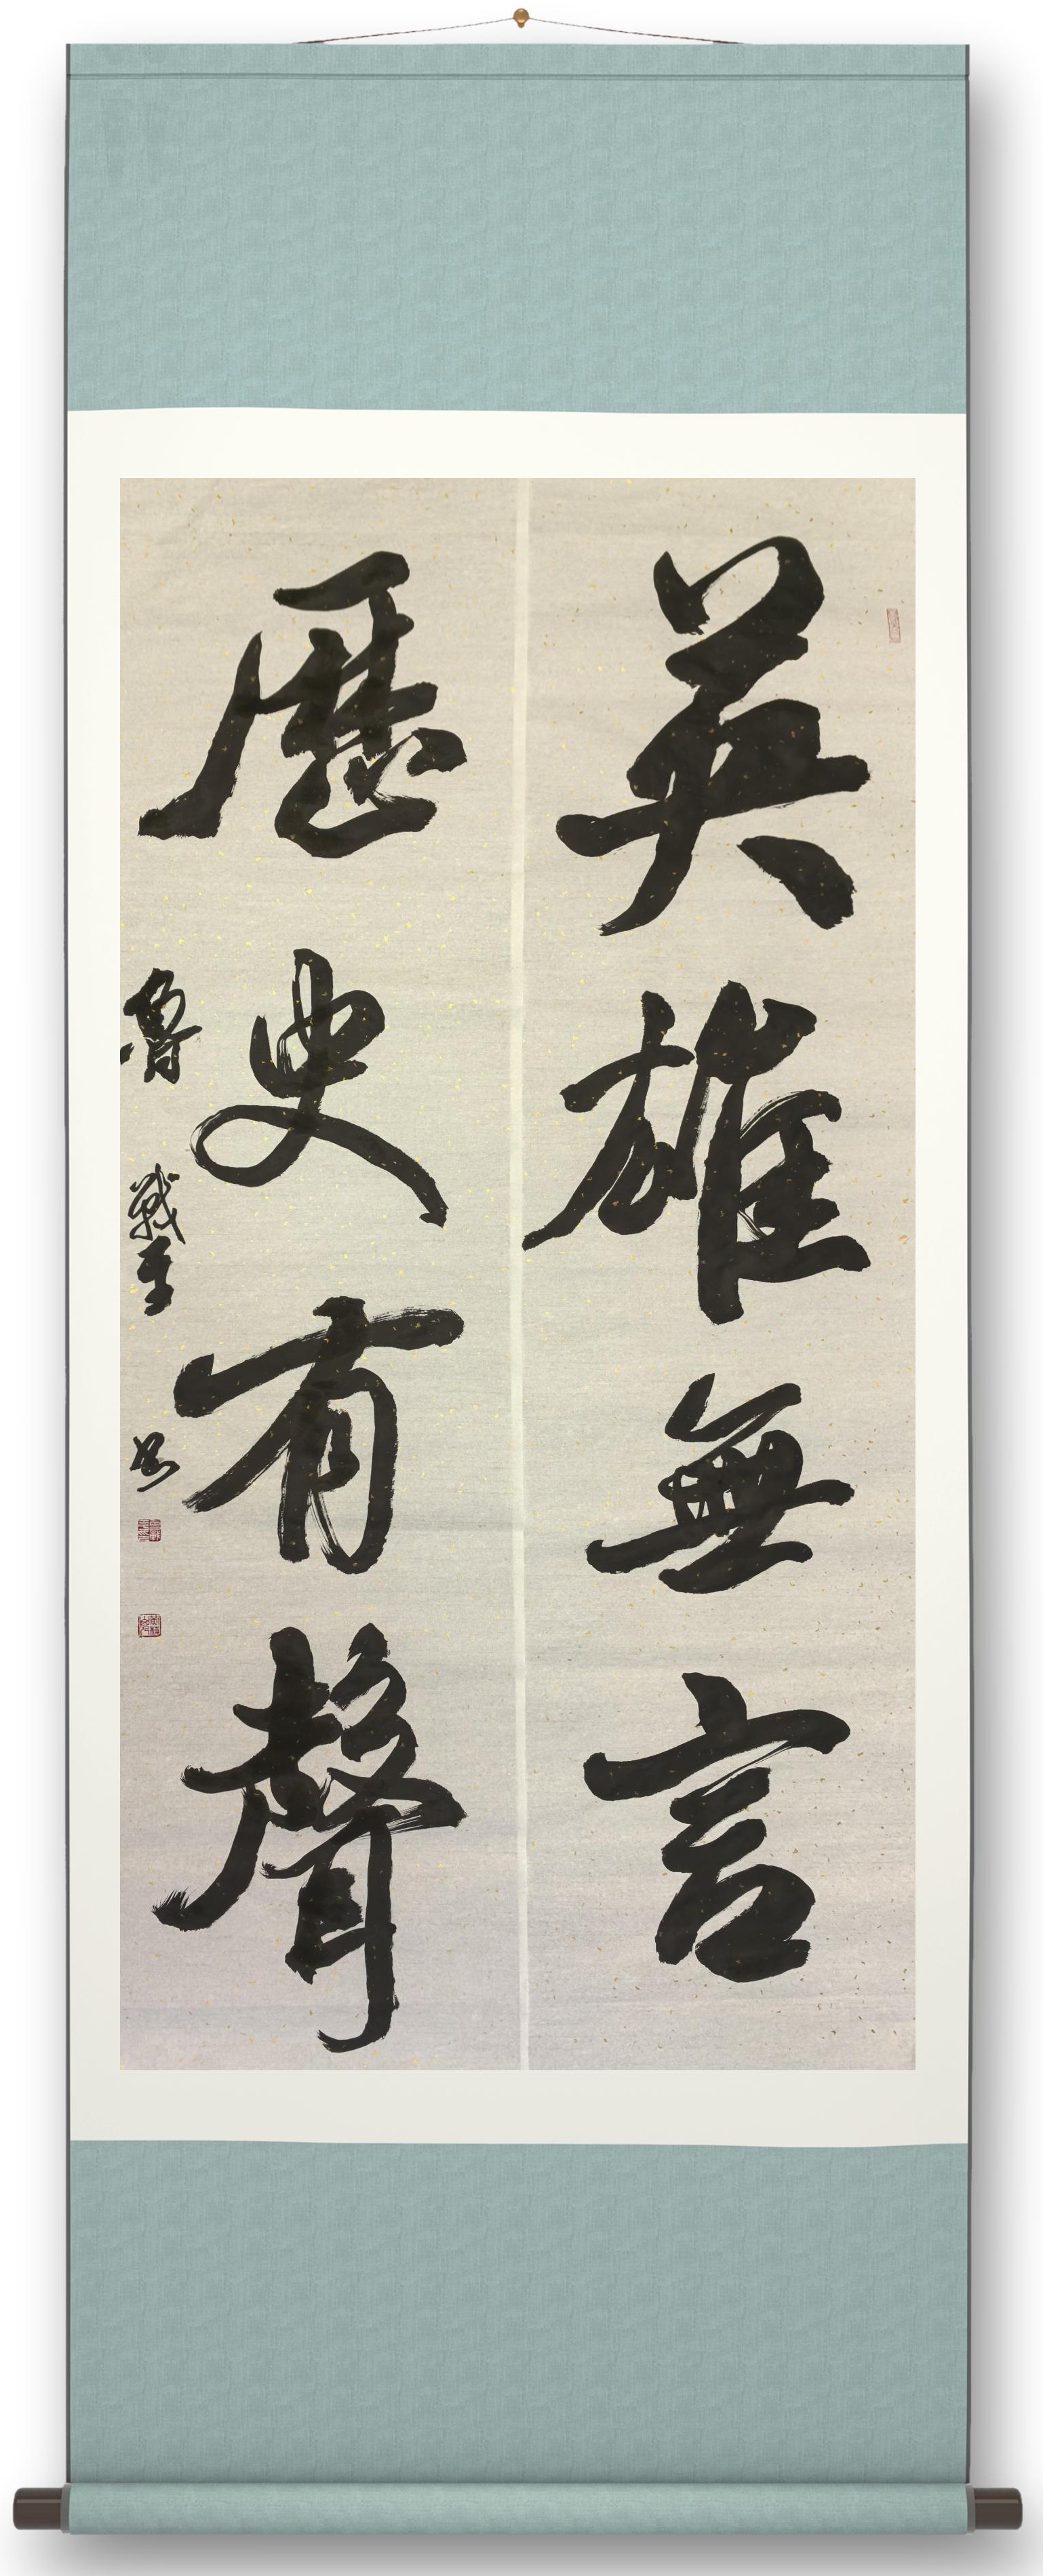 英雄無言
歷史有聲
魯 戰 書